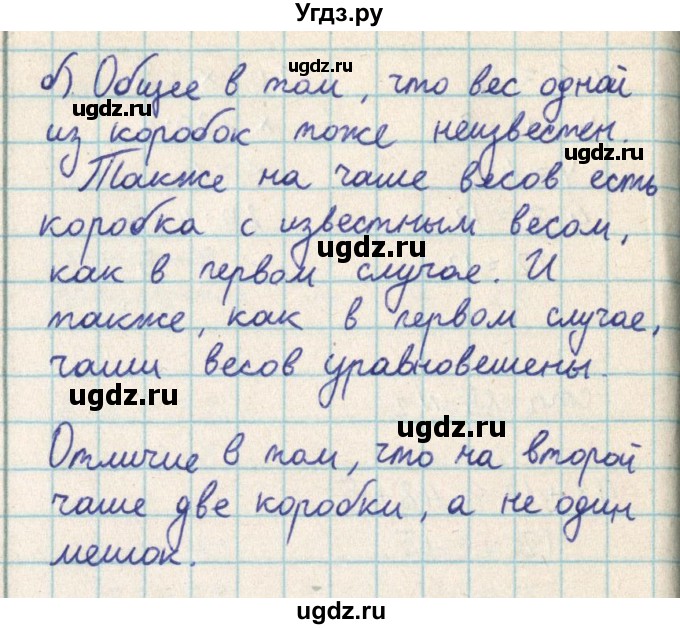 Угдз.ру
ugdz.ru
б) Общее в том, что вес одной
ugdz.ru
из коробок тоже неизвестен.
ugdz.ru
Также на чаше весов есть
коробка с известным весом,
ugdz.ru
как в первом случае. И
также, как в первом случае,
чаши весов уравновешены.
ugdz.ru
ugdz.ru
Отличие в том, что на второй
чаше две коробки, а не один
ugdz.ru
мешок.
ugdz.ru